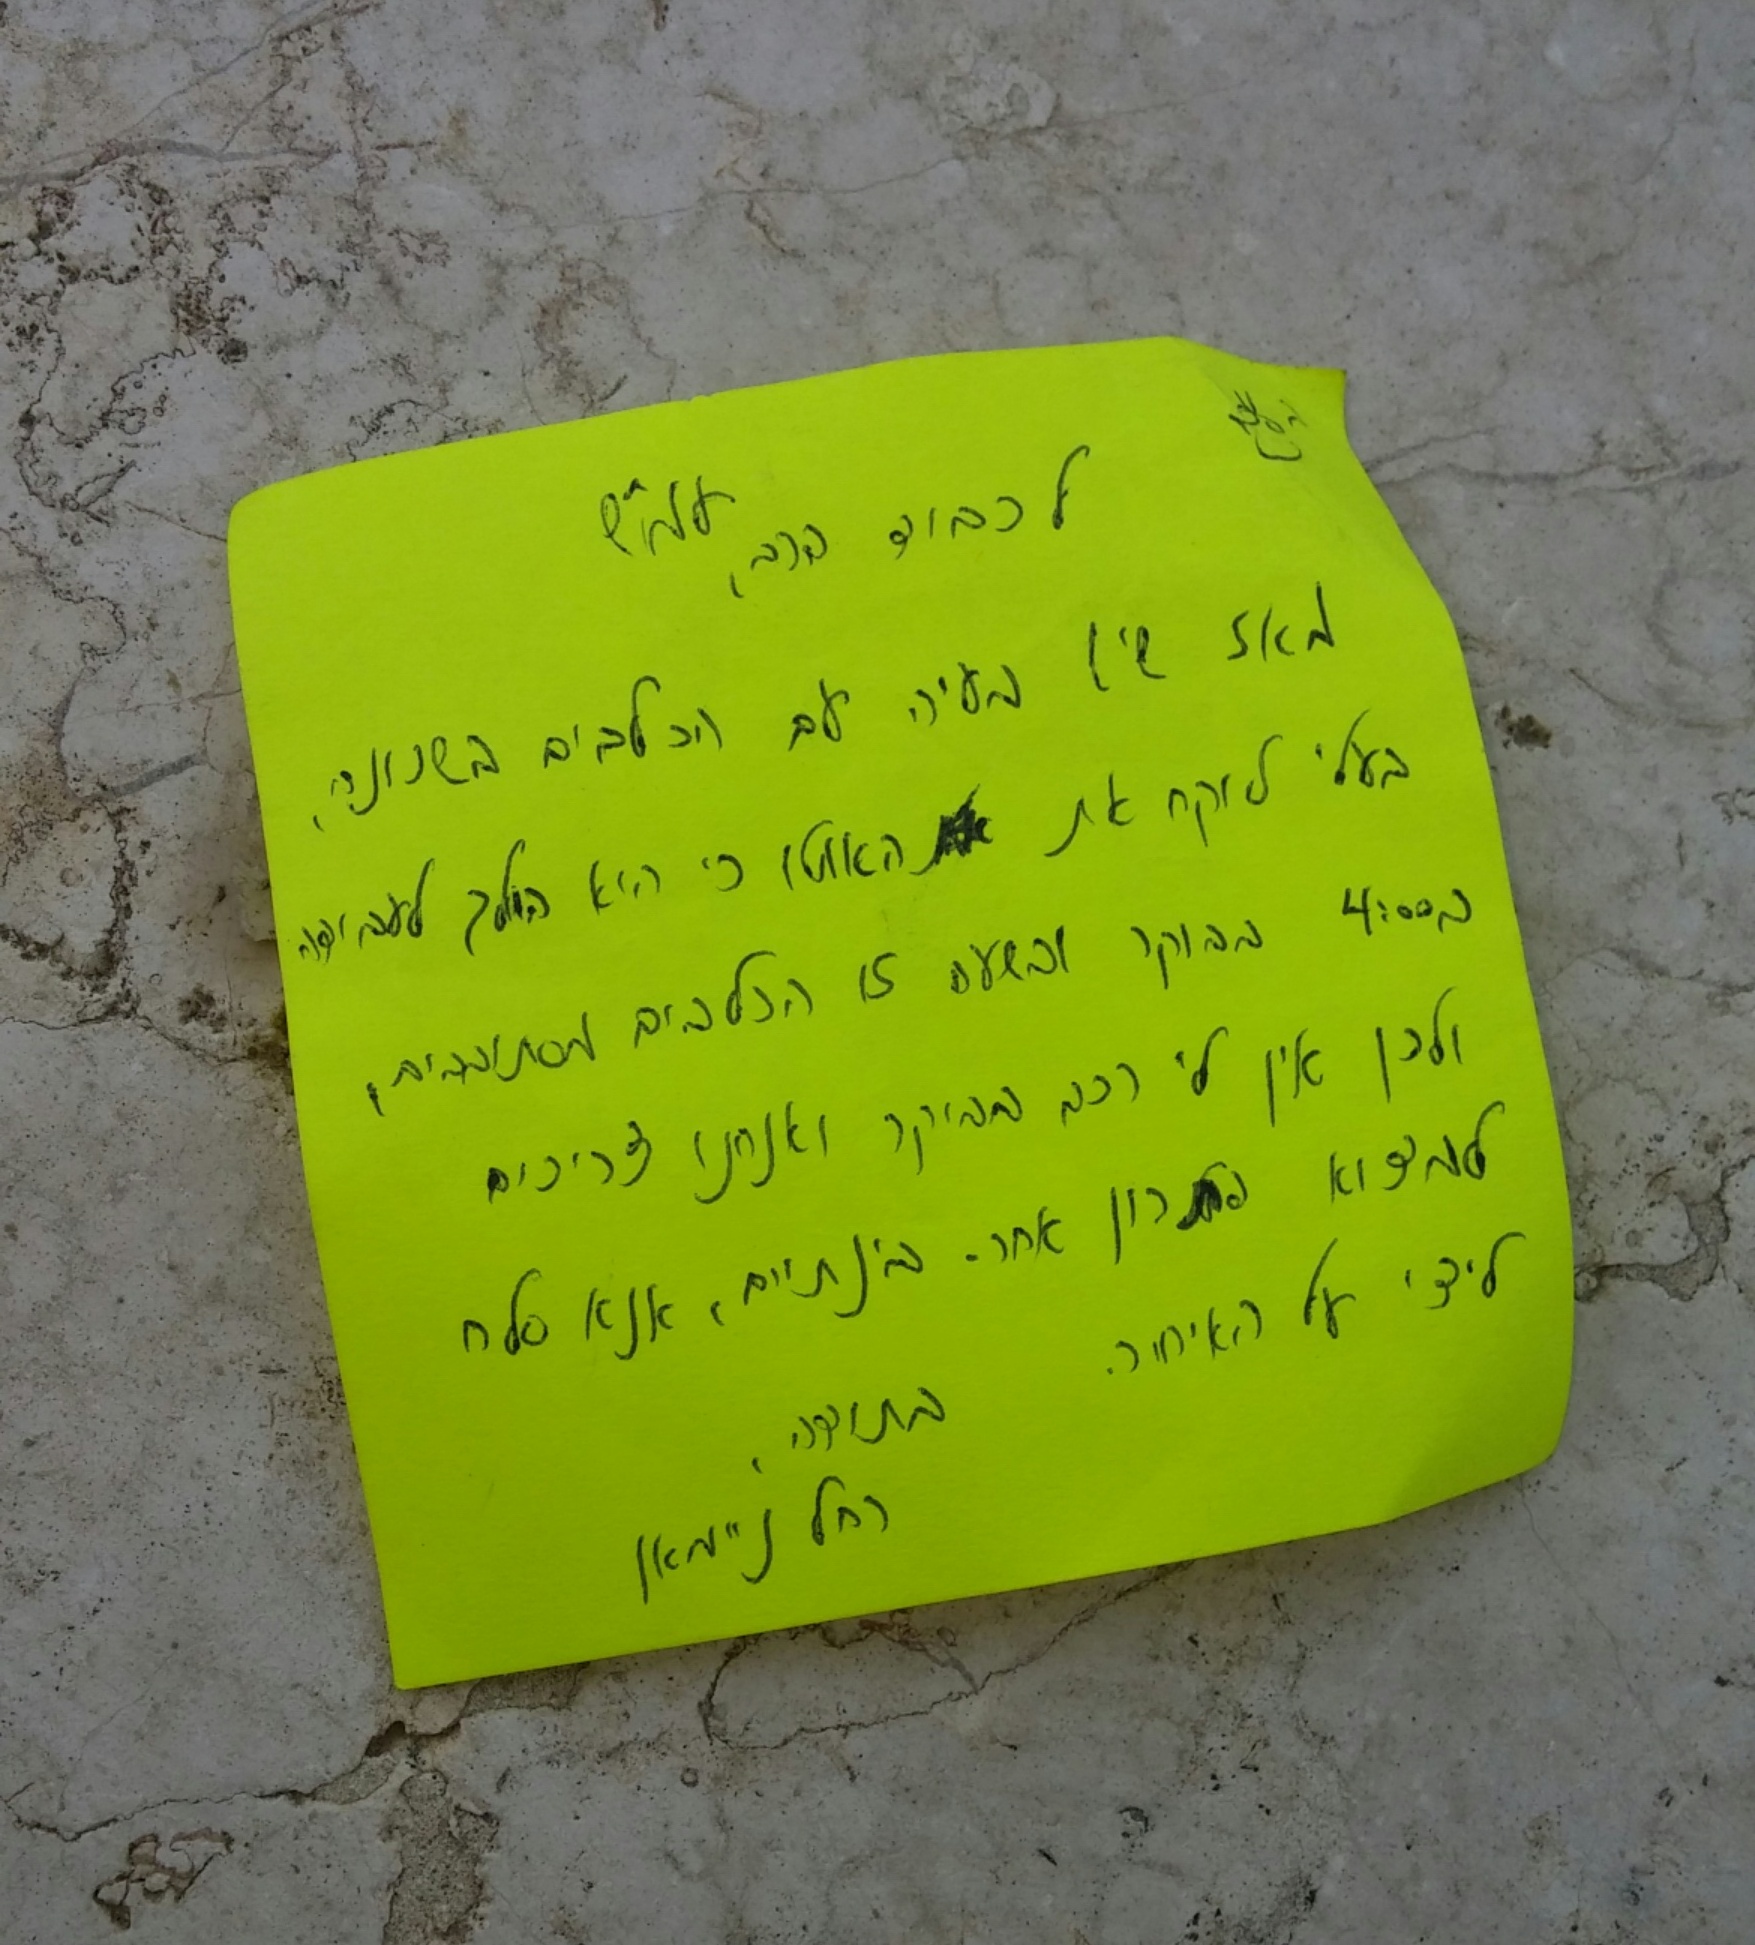 בס"ד
לכבוד הרב, עמו"ש
מאז שיש בעיה עם הכלבים בשכונה,
בעלי לוקח את האוטו כי היא הולך לעבודה
ב4:00 בבוקר ובשעה זו הכלבים מסתובבים,
ולכן אין לי רכב בבוקר ואנחנו צריכים
למצוא פתרון אחר. בינתיים, אנא סלח
ליצי על האיחור.
בתודה,
רחל ניימאן